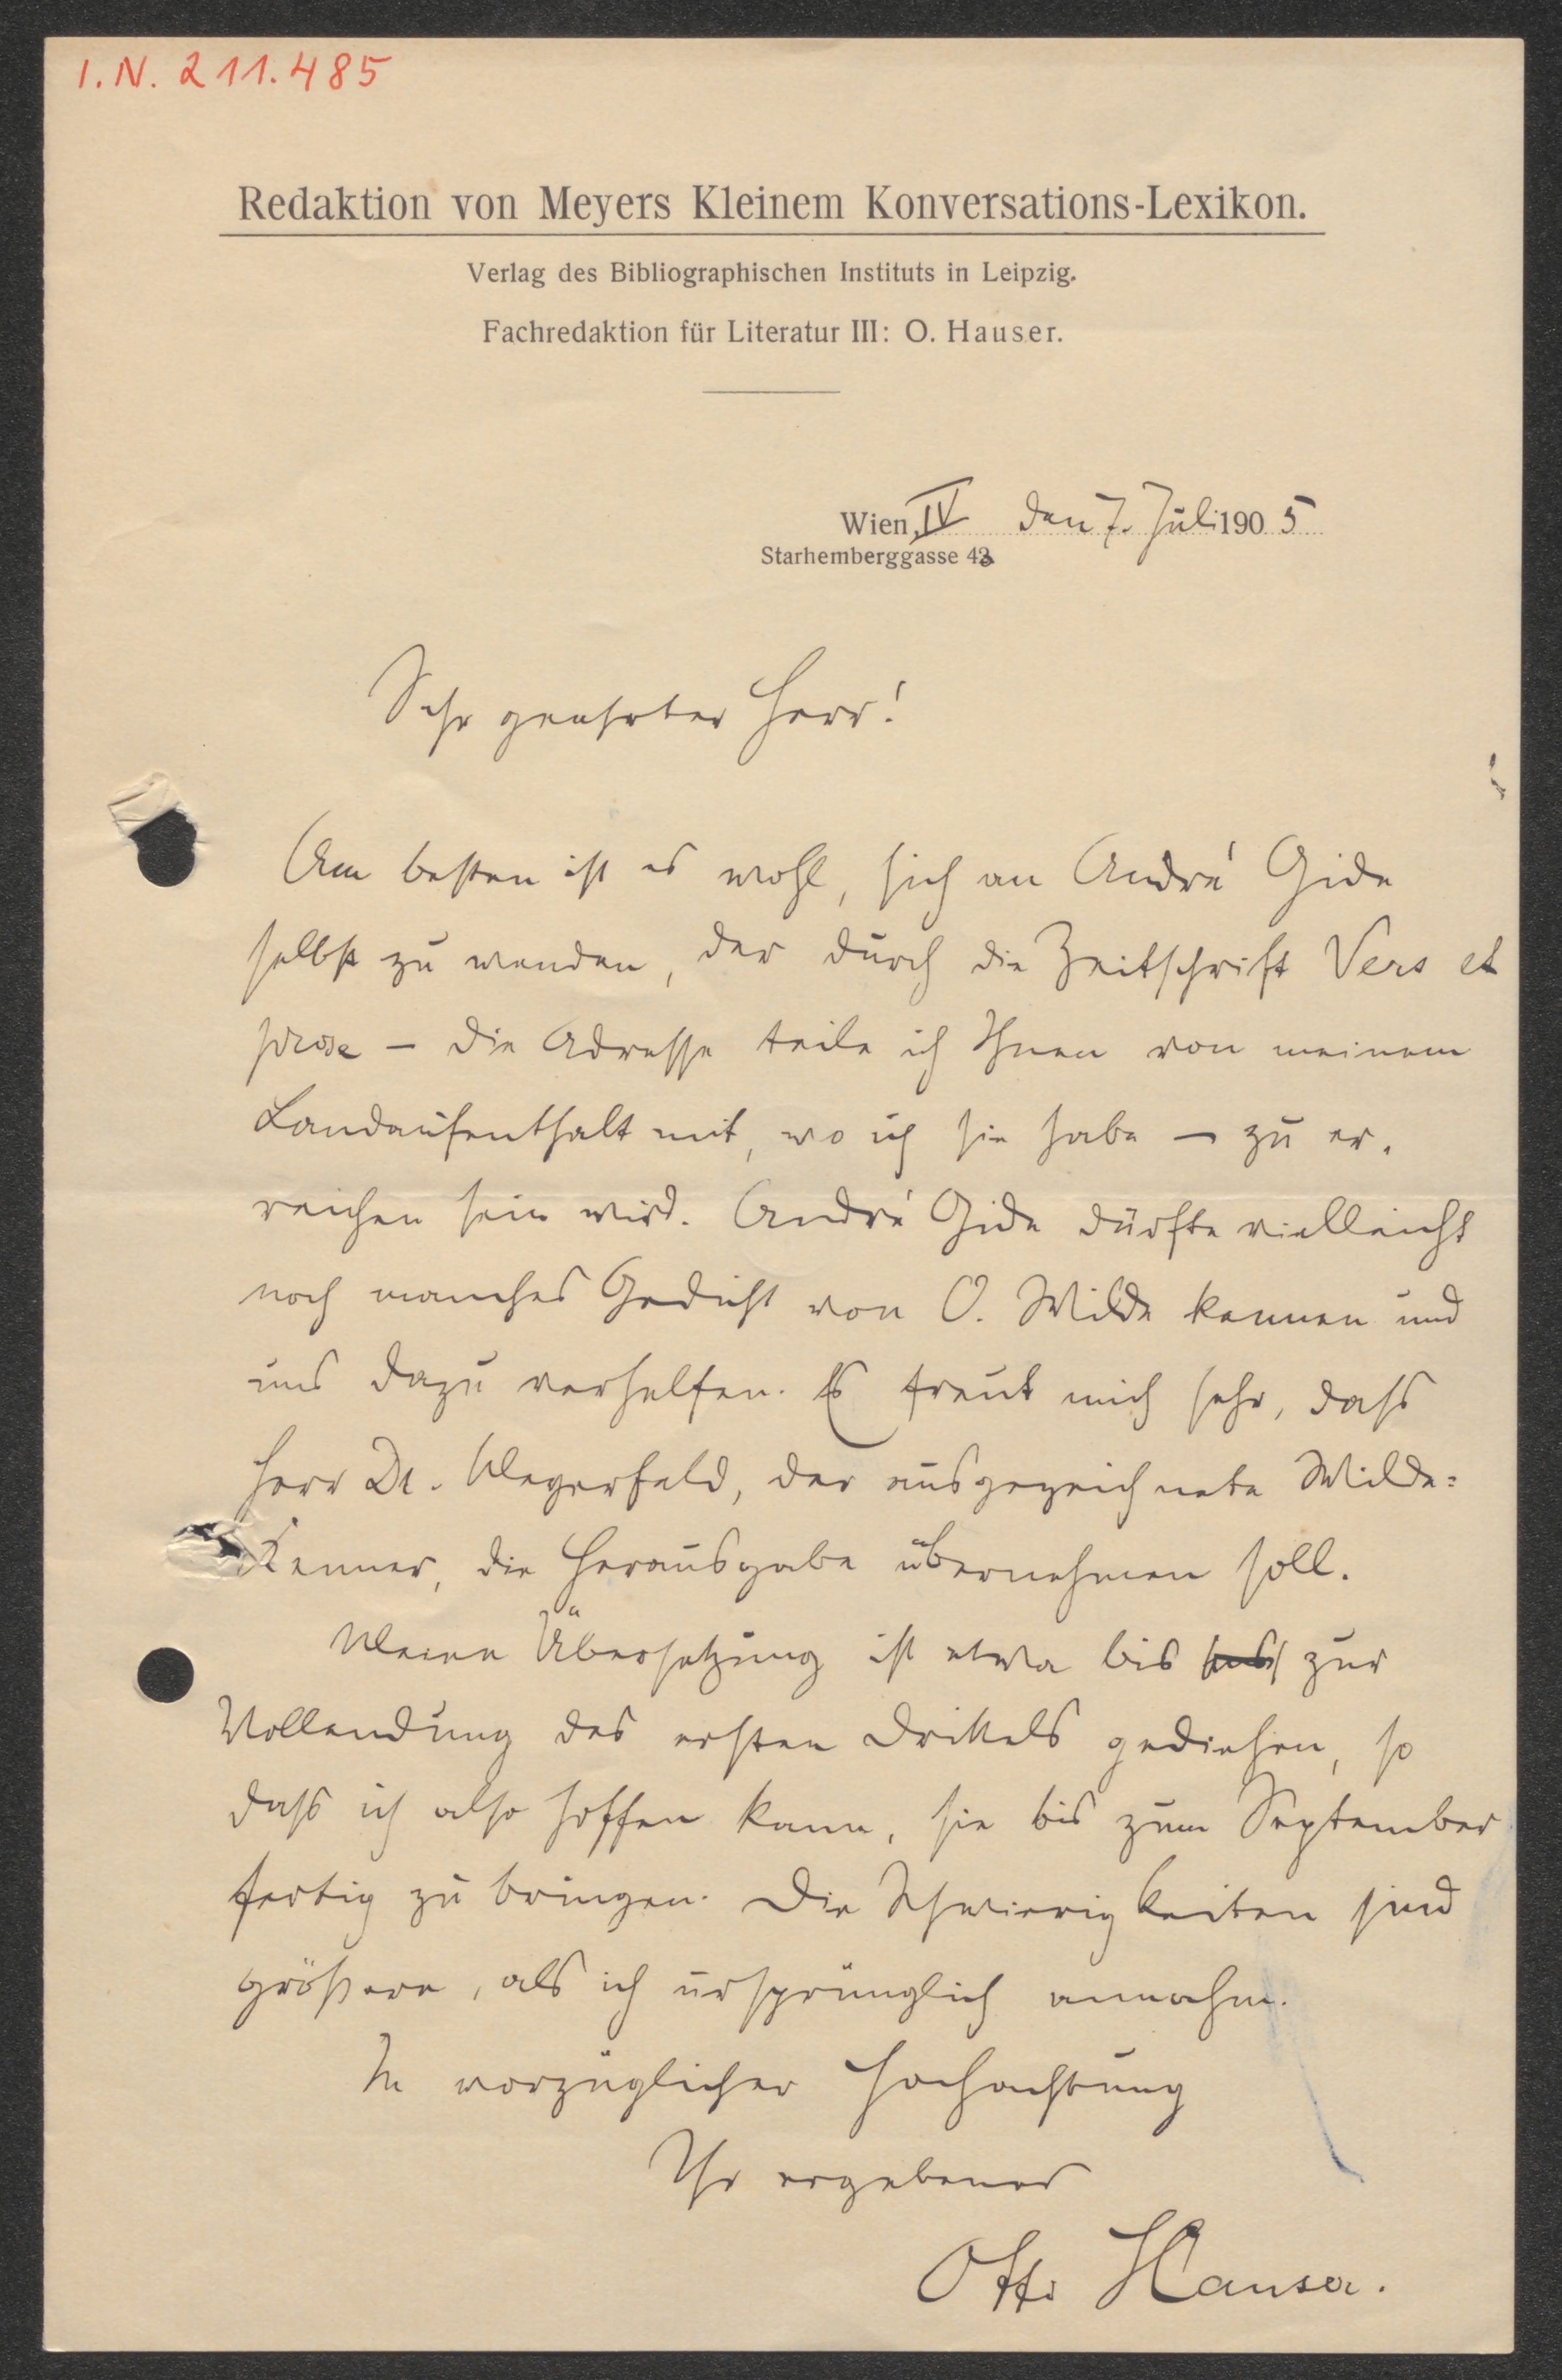 I. N. 211.485
Redaktion von Meyers Kleinem Konversations-Lexikon.
Verlag des Bibliographischen Instituts in Leipzig.
Fachredaktion für Literatur III: O. Hauser.
Wien, IV den 7. Juli 1905
Starhemberggasse 43
Sehr geehrter Herr!
Am besten ist es wohl, sich an André Gide
selbst zu wenden, der durch die Zeitschrift Vers et
prose – die Adresse teile ich Ihnen von meinem
Landaufenthalt mit, wo ich sie habe – zu er-
reichen sein wird. André Gide dürfte vielleicht
noch manches Gedicht von O. Wilde kennen und
uns dazu verhelfen. Es freut mich sehr, dass
Herr Dr. Meyerfeld, der ausgezeichnete Wilde-
Kenner, die Herausgabe übernehmen soll.
Meine Übersetzung ist etwa bis zur
Vollendung des ersten Drittels gediehen, so
dass ich also hoffen kann, sie bis zum September
fertig zu bringen. Die Schwierigkeiten sind
größere, als ich ursprünglich annahm.
In vorzüglicher Hochachtung
Ihr ergebener
Otto Hauser.